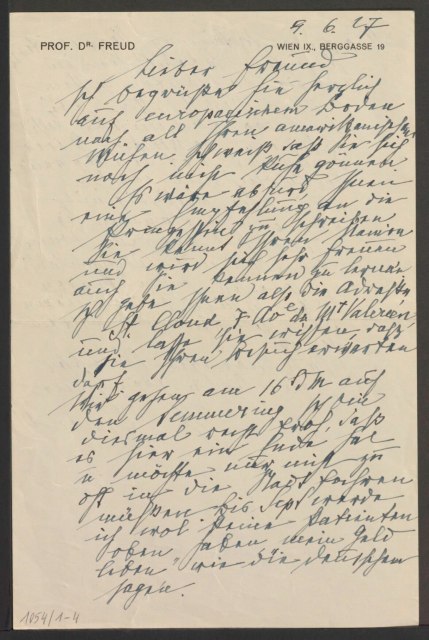 9. 6. 27
PROF. DR. FREUD
WIEN IX., BERGGASSE 19
Lieber Freund
Ich begrüße Sie herzlich
auf europäischem Boden
nach all Ihren amerikanischen
Mühen. Ich weiß daß Sie sich
noch nicht Ruhe gönnen
Es wäre absurd Ihnen
eine Empfehlung an die
Prinzessin zu schreiben
Sie kennt Ihren Namen
und wird sich sehr freuen
auch Sie kennen zu lernen
Ich gebe Ihnen also die Adresse
St. Cloud 7 Ave du Mt Valérien,
und lasse Sie wissen, daß
sie Ihren Besuch erwarten
darf
Wir gehen am 16 d M auf
den Semmering Ich bin
diesmal recht froh, daß
es hier ein Ende hat
u möchte nur nicht zu
oft in die Stadt fahren
müßen. Bis Sept werde
ich wol keine Patienten
oben haben "mein Geld
leben" wie die Deutschen
sagen.
1054/1-4